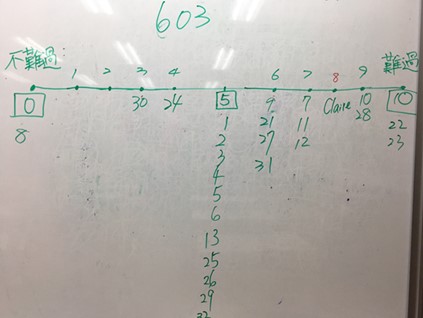 603
不難過: 難過
1 2 3 4 6 7 8 9
0 5 10
30 24 9 7 Claire 10
8 1 21 11 28 22
2 27 12 23
3 31
4
5
6
13
25
26
29
32